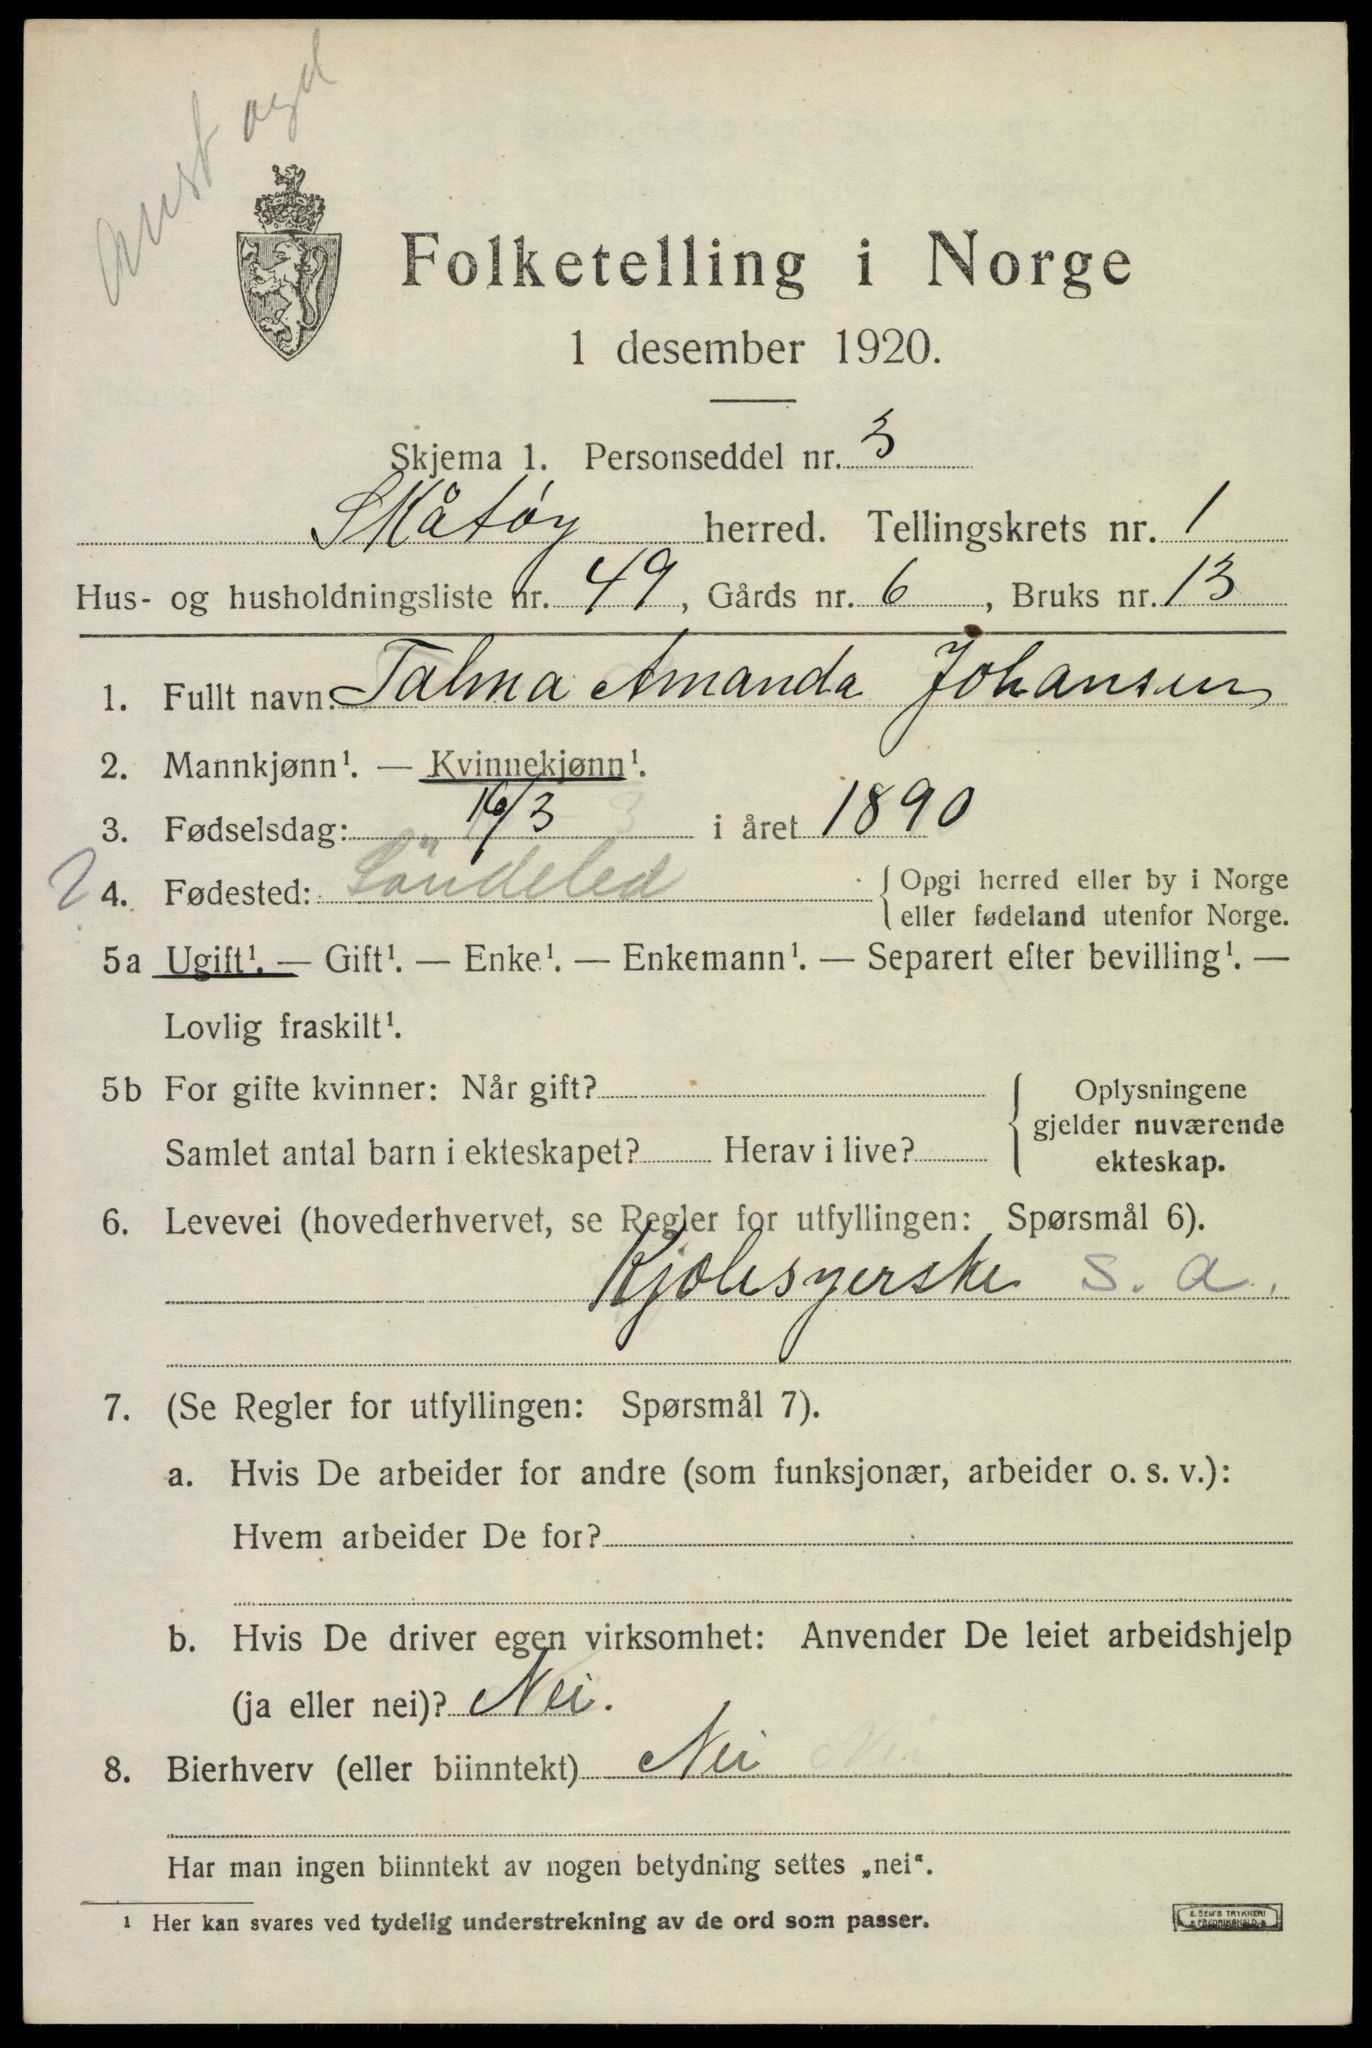 Aust agd
Folketelling i Norge
1 desember 1920.
Skjema 1. Personseddel nr. 3
Skåtøy herred. Tellingskrets nr. 1
Hus- og husholdningsliste nr. 49, Gårds nr. 6, Bruks nr. 13
1. Fullt navn: Talma Amanda Johansen
2. Mannkjønn¹. — Kvinnekjønn¹.
3. Fødselsdag: 16/3 i året 1890
? 4. Fødested: Söndeled { Opgi herred eller by i Norge
eller fødeland utenfor Norge.
5a Ugift¹. — Gift¹. — Enke¹. — Enkemann¹. — Separert efter bevilling¹. —
Lovlig fraskilt¹.
5b For gifte kvinner: Når gift?
Samlet antal barn i ekteskapet? Herav i live?
{ Oplysningene
gjelder nuværende
ekteskap.
6. Levevei (hovederhvervet, se Regler for utfyllingen: Spørsmål 6).
Kjolesyerske s. a.
7. (Se Regler for utfyllingen: Spørsmål 7).
a. Hvis De arbeider for andre (som funksjonær, arbeider o. s. v.):
Hvem arbeider De for?
b. Hvis De driver egen virksomhet: Anvender De leiet arbeidshjelp
(ja eller nei)? Nei.
8. Bierhverv (eller biinntekt) Nei Nei
Har man ingen biinntekt av nogen betydning settes „nei“.
¹ Her kan svares ved tydelig understrekning av de ord som passer.
E. SEM'S TRYKKERI
FREDRIKSHALD